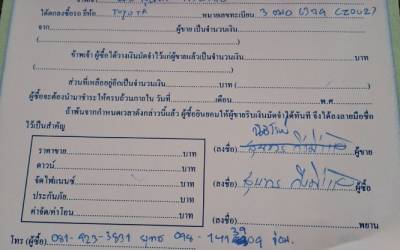 ได้ตกลงซื้อรถ ยี่ห้อ TOYOTA หมายเลขทะเบียน 3 (2002)
จาก ผู้ขาย เป็นจำนวนเงิน
ข้าพเจ้า ผู้ซื้อ ได้วางเงินมัดจำไว้แก่ผู้ขายแล้วเป็นจำนวนเงิน
บาท
ส่วนที่เหลืออยู่อีกเป็นจำนวนเงิน บาท
ผู้ซื้อจะต้องนำมาชำระให้ครบถ้วนภายใน วันที่ เดือน พ.ศ.
ถ้าพ้นจากกำหนดเวลาดังกล่าวนี้แล้ว ผู้ซื้อยินยอมให้ผู้ขายริบเงินมัดจำได้ทันที จึงได้ลงลายมือชื่อ
ไว้เป็นสำคัญ
ราคาขาย บาท
ดาวน์ บาท
จัดไฟแนนซ์ บาท
ประกันภัย บาท
ค่าจัดทำโอน บาท
(ลงชื่อ) ผู้ขาย
(ลงชื่อ) ผู้ซื้อ
(ลงชื่อ) พยาน
โทร (ผู้ซื้อ) 081-923-3831